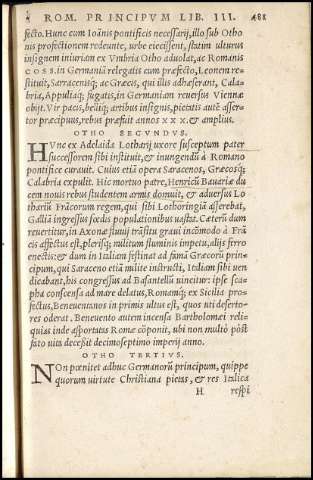 ROM. PRINCIPVM LIB. III.
fecto. Hunc cum Ioãnis pontificis necessarij, illo sub Otho
nis profectionem redeunte, urbe eiecissent, statim ulturus
insignem iniuriam ex Vmbria Otho aduolat, ac Romanis
COSS. in Germaniã relegatis cum præfecto, Leonem re=
stituit, Sarracenisq; ac Græcis, qui illis adhæserant, Cala=
bria, Appuliaq; fugatis, in Germaniam reuersus Viennæ
obijt. Vir pacis, belliq; artibus insignis, pietatis autē asser=
tor præcipuus, rebus præfuit annos XXX. & amplius.
OTHO SECVNDVS.
HVnc ex Adelaida Lotharij uxore susceptum pater
successorem sibi instituit, & inungendũ à Romano
pontifice curauit. Cuius etiã opera Saracenos, Græcosq;
Calabria expulit. Hic mortuo patre, Henricũ Bauariæ du
cem nouis rebus studentem armis domuit, & aduersus Lo
tharũ Frãcorum regem, qui sibi Lothoringiã asserebat,
Galliã ingressus fœdis populationibus uastat. Cæterũ dum
reuertitur, in Axonæ fluuij trãsitu graui incõmodo à Frã
cis affectus est, plerisq; militum fluminis impetu, alijs ferro
enectis: & dum in Italiam festinat ad famã Græcorũ prin=
cipum, qui Saraceno etiã milite instructi, Italiam sibi uen
dicabant, his congressus ad Basantellũ uincitur: ipse sca=
pha conscensa ad mare delatus, Romamq; ex Sicilia pro=
fectus, Beneuentanos in primis ultus est, quos uti deserto=
res oderat. Beneuento autem incensa Bartholomæi reli=
quias inde asportatas Romæ cõponit, ubi non multò pòst
fato uita decessit decimoseptimo imperij anno.
OTHO TERTIVS.
NOn pœnitet adhuc Germanorũ principum, quippe
quorum uirtute Christiana pietas, & res Italica
H respi